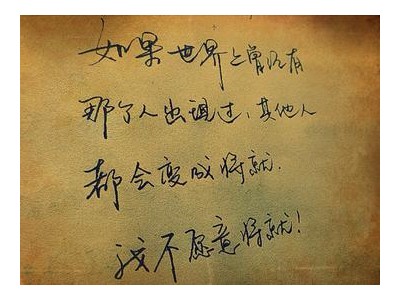 如果世界上曾经有
那个人出现过，其他人
都会变成将就.
我不愿意将就!